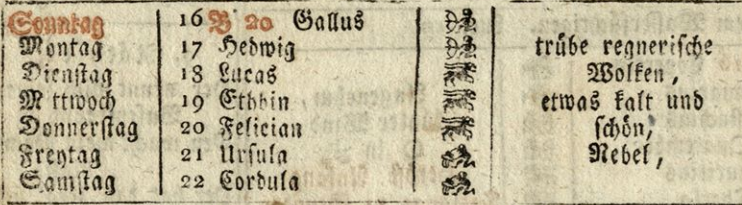 Sonntag 16 B 20 Gallus
Montag 17 Hedwig trübe regnerische
Dienstag 18 Lucas Wolken,
M ttwoch 19 Ethbin etwas kalt und
Donnerstag 20 Felician schön,
Freytag 21 Ursula Nebel,
Samstag 22 Cordula